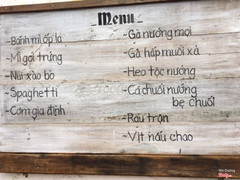 Menu
-Bánh mì ốp la
-Mì gói trứng
-Nui xào bò
-Spaghetti
-Cơm gia định
-Gà nướng mọi
-Gà hấp muối xả
-Heo tộc nướng
-Cá chuối nướng
bẹ chuối
-Rau trộn
-Vịt nấu chao